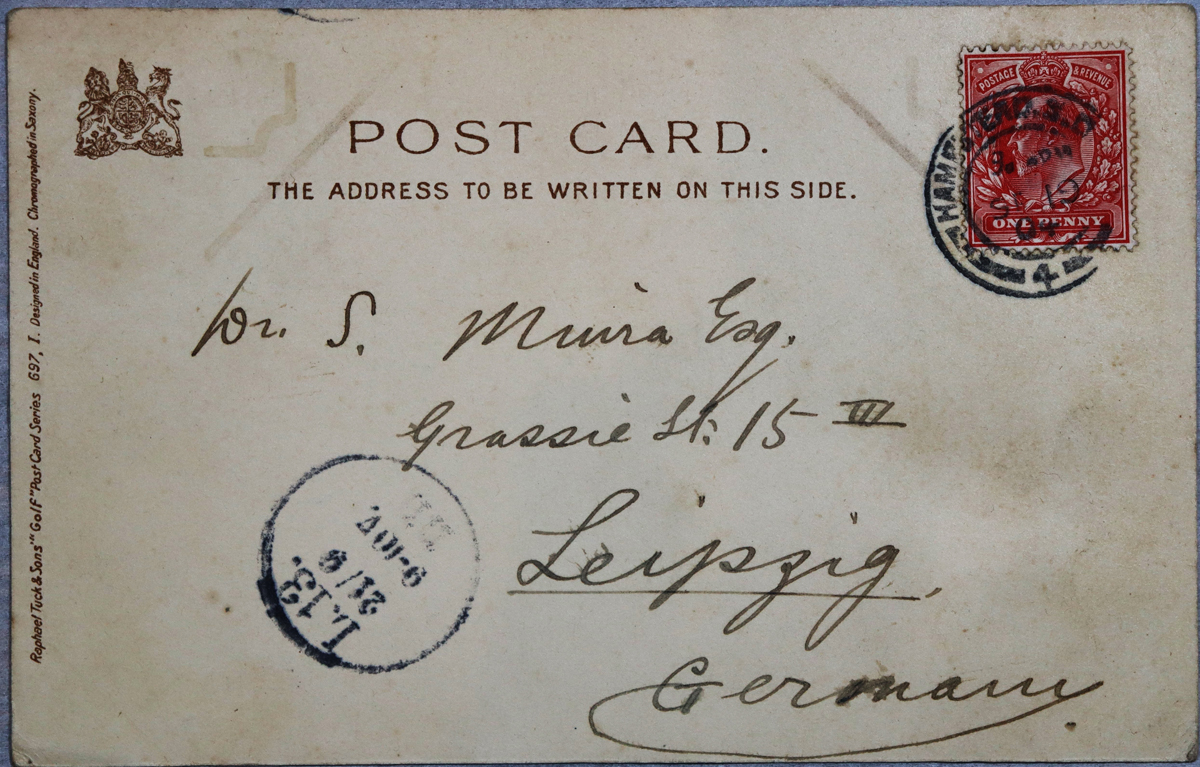 POST CARD.
THE ADDRESS TO BE WRITTEN ON THIS SIDE.
Raphael Tuck & Sons' "Golf" Post Card Series 697, I. Designed in England. Chromographed in Saxony.
POSTAGE & REVENUE
ONE PENNY
4
Dr. S. Miura Esq.
Grassie St: 15 III
Leipzig.
Germany
L.13.
21/9
9-10V.